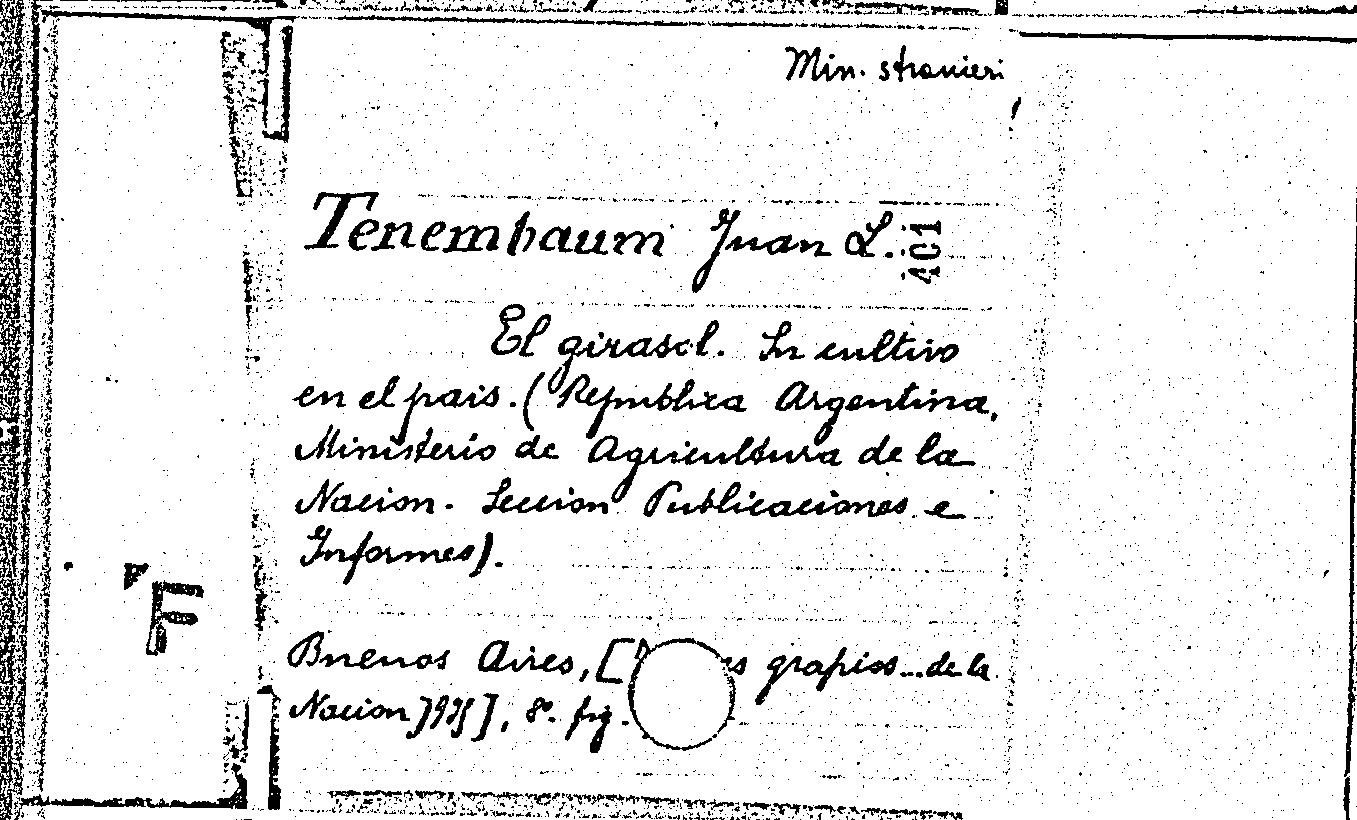 Min. stranieri
Tenembaum Juan L.
401
El girasol. Su cultivo
en el pais. (Republica Argentina,
Ministerio de Agricultura de la
Nacion. Seccion Publicaciones e
Informes).
F
Buenos Aires, [ es grafiss... de la
Nacion] 1935], 8°. fig.